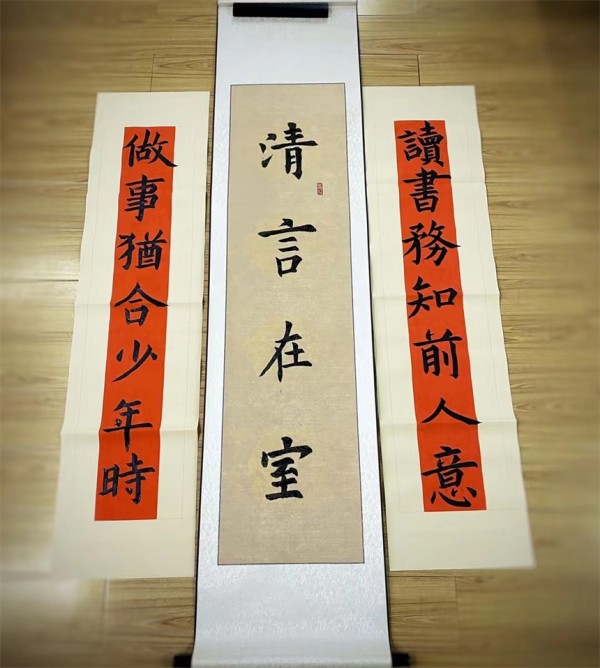 讀書務知前人意
清言在室
做事猶合少年時